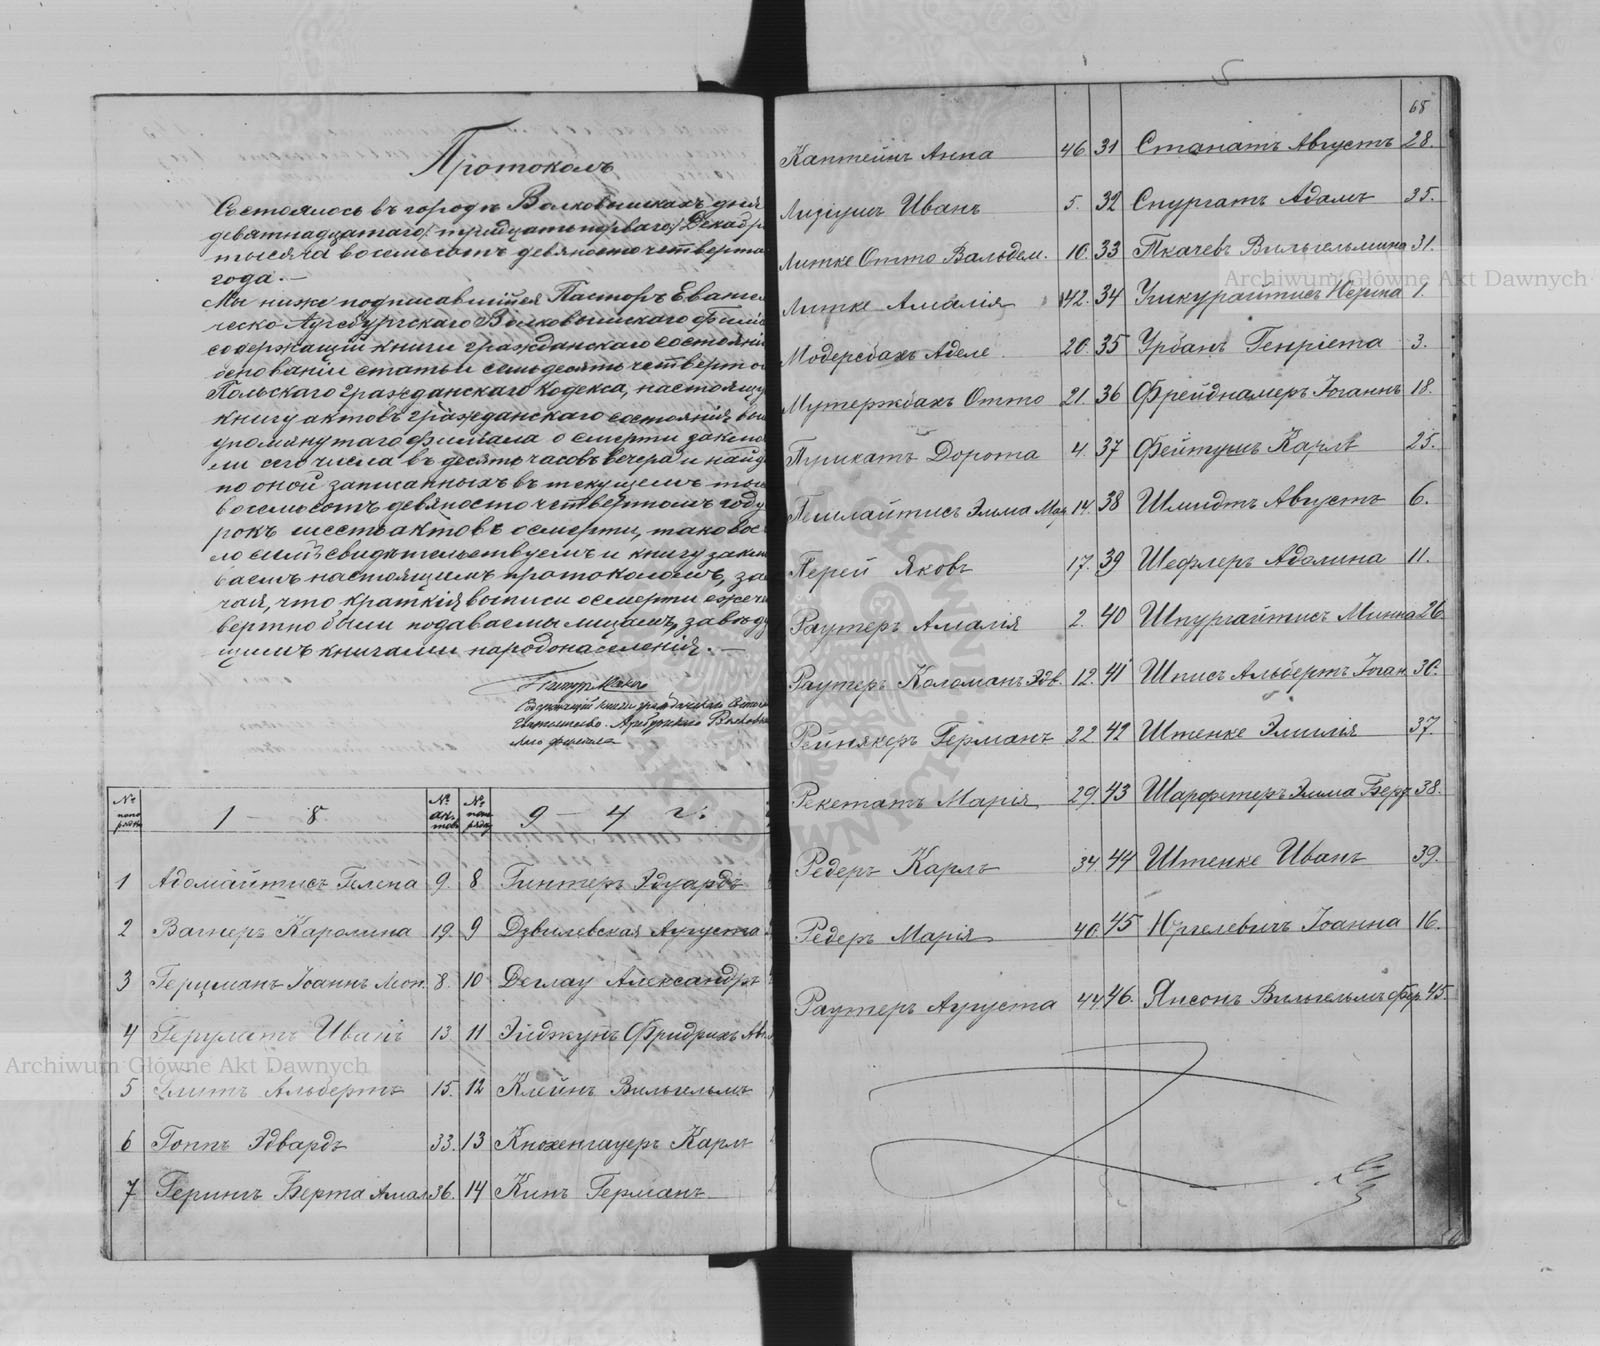 Протоколъ
Состоялось въ городѣ Волковышкахъ дня
девятнадцатаго/тридцать перваго/Декабр
тысяча восемьсотъ девяносто четверта
года.—
Мы ниже подписавшійся Пасторъ Еванге
ческо Аугсбургскаго Волковышскаго филі
содержащій книги гражданскаго состояні
основаніи статьи семьдесятъ четвертой
Польскаго Гражданскаго Кодекса, настоящу
книгу актовъ гражданскаго состоянія выш
упомянутаго филіала о смерти заклю
ли сего числа въ десять часовъ вечера и найд
по оной записанныхъ въ текущемъ тыс
восемьсотъ девяносто четвертомъ году
рокъ шесть актовъ о смерти, таковое
ло симъ свидѣтельствуемъ и книгу заклю
ваемъ настоящимъ протоколомъ, за
чая, что краткія выписи о смерти ежече
вертно были подаваемы лицамъ, завѣду
щимъ книгами народонаселенія.—
Пасторъ
Содержащій книги гражданскаго состоя
Евангелическо. Аугсбургскаго Волковы
каго филіала
№ по порядку
1 — 8
№ актовъ
№ по порядку
9 — 4 г.
1 Адомайтисъ Гелена 9. 8 Гинтеръ Эдуардъ
2 Вагнеръ Каролина 19. 9 Дзвилевская Августа
3 Герцманъ Іоаннъ Леоп. 8. 10 Деглау Александръ
4 Герулатъ Иванъ 13. 11 Эйджунъ Фридрихъ Авг.
5 Альбертъ 15. 12 Клейнъ Вильгельмъ
6 Гоппъ Эдвардъ 33. 13 Кнохенгауеръ Карлъ
7 Герингъ Берта Амал 36. 14 Кинъ Германъ
68
Каптейнъ Анна 46 31 Станатъ Августъ 28.
Лидіушъ Иванъ 5. 32 Спургатъ Адамъ 35.
Литке Отто Вальдем. 10. 33 Ткачевъ Вильгельмина 31.
Литке Амалія 42. 34 1.
Модерсбахъ Аделе 20. 35 Урбанъ Генріета 3.
Мутержбахъ Отто 21. 36 Фрейднамеръ Іоганнъ 18.
Пурикатъ Дорота 4. 37 Фейтушъ Карлъ 25.
Эмма Мар 14. 38 Шмидтъ Августъ 6.
Перей Яковъ 17. 39 Шефлеръ Адолина 11.
Раутеръ Амалія 2. 40 Шпургайтисъ Минна 26.
Раутеръ Коломанъ Эдв. 12. 41 Шписъ Альбертъ Іоган. 30.
Рейнякеръ Германъ 22. 42 Штенке Эмилія 37.
Рекетатъ Марія 29. 43 Шарфетеръ Эмма Берт 38.
Редеръ Карлъ 34 44 Штенке Иванъ 39.
Редеръ Марія 40. 45 Юргелевичъ Іоанна 16.
Раутеръ Августа 44. 46. Янсонъ Вильгельмъ Фер. 45.
Archiwum Główne Akt Dawnych
Archiwum Główne Akt Dawnych